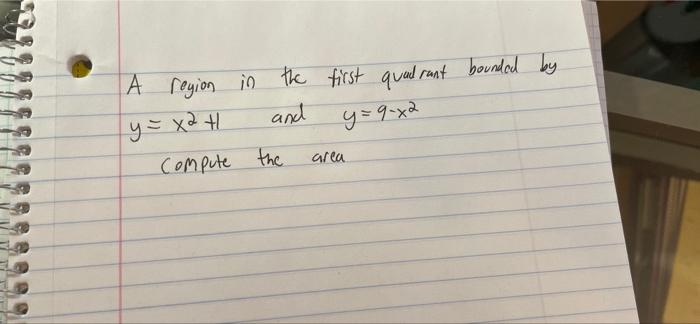 A region in the first quadrant bounded by
y = x² +1 and y = 9-x²
compute the area